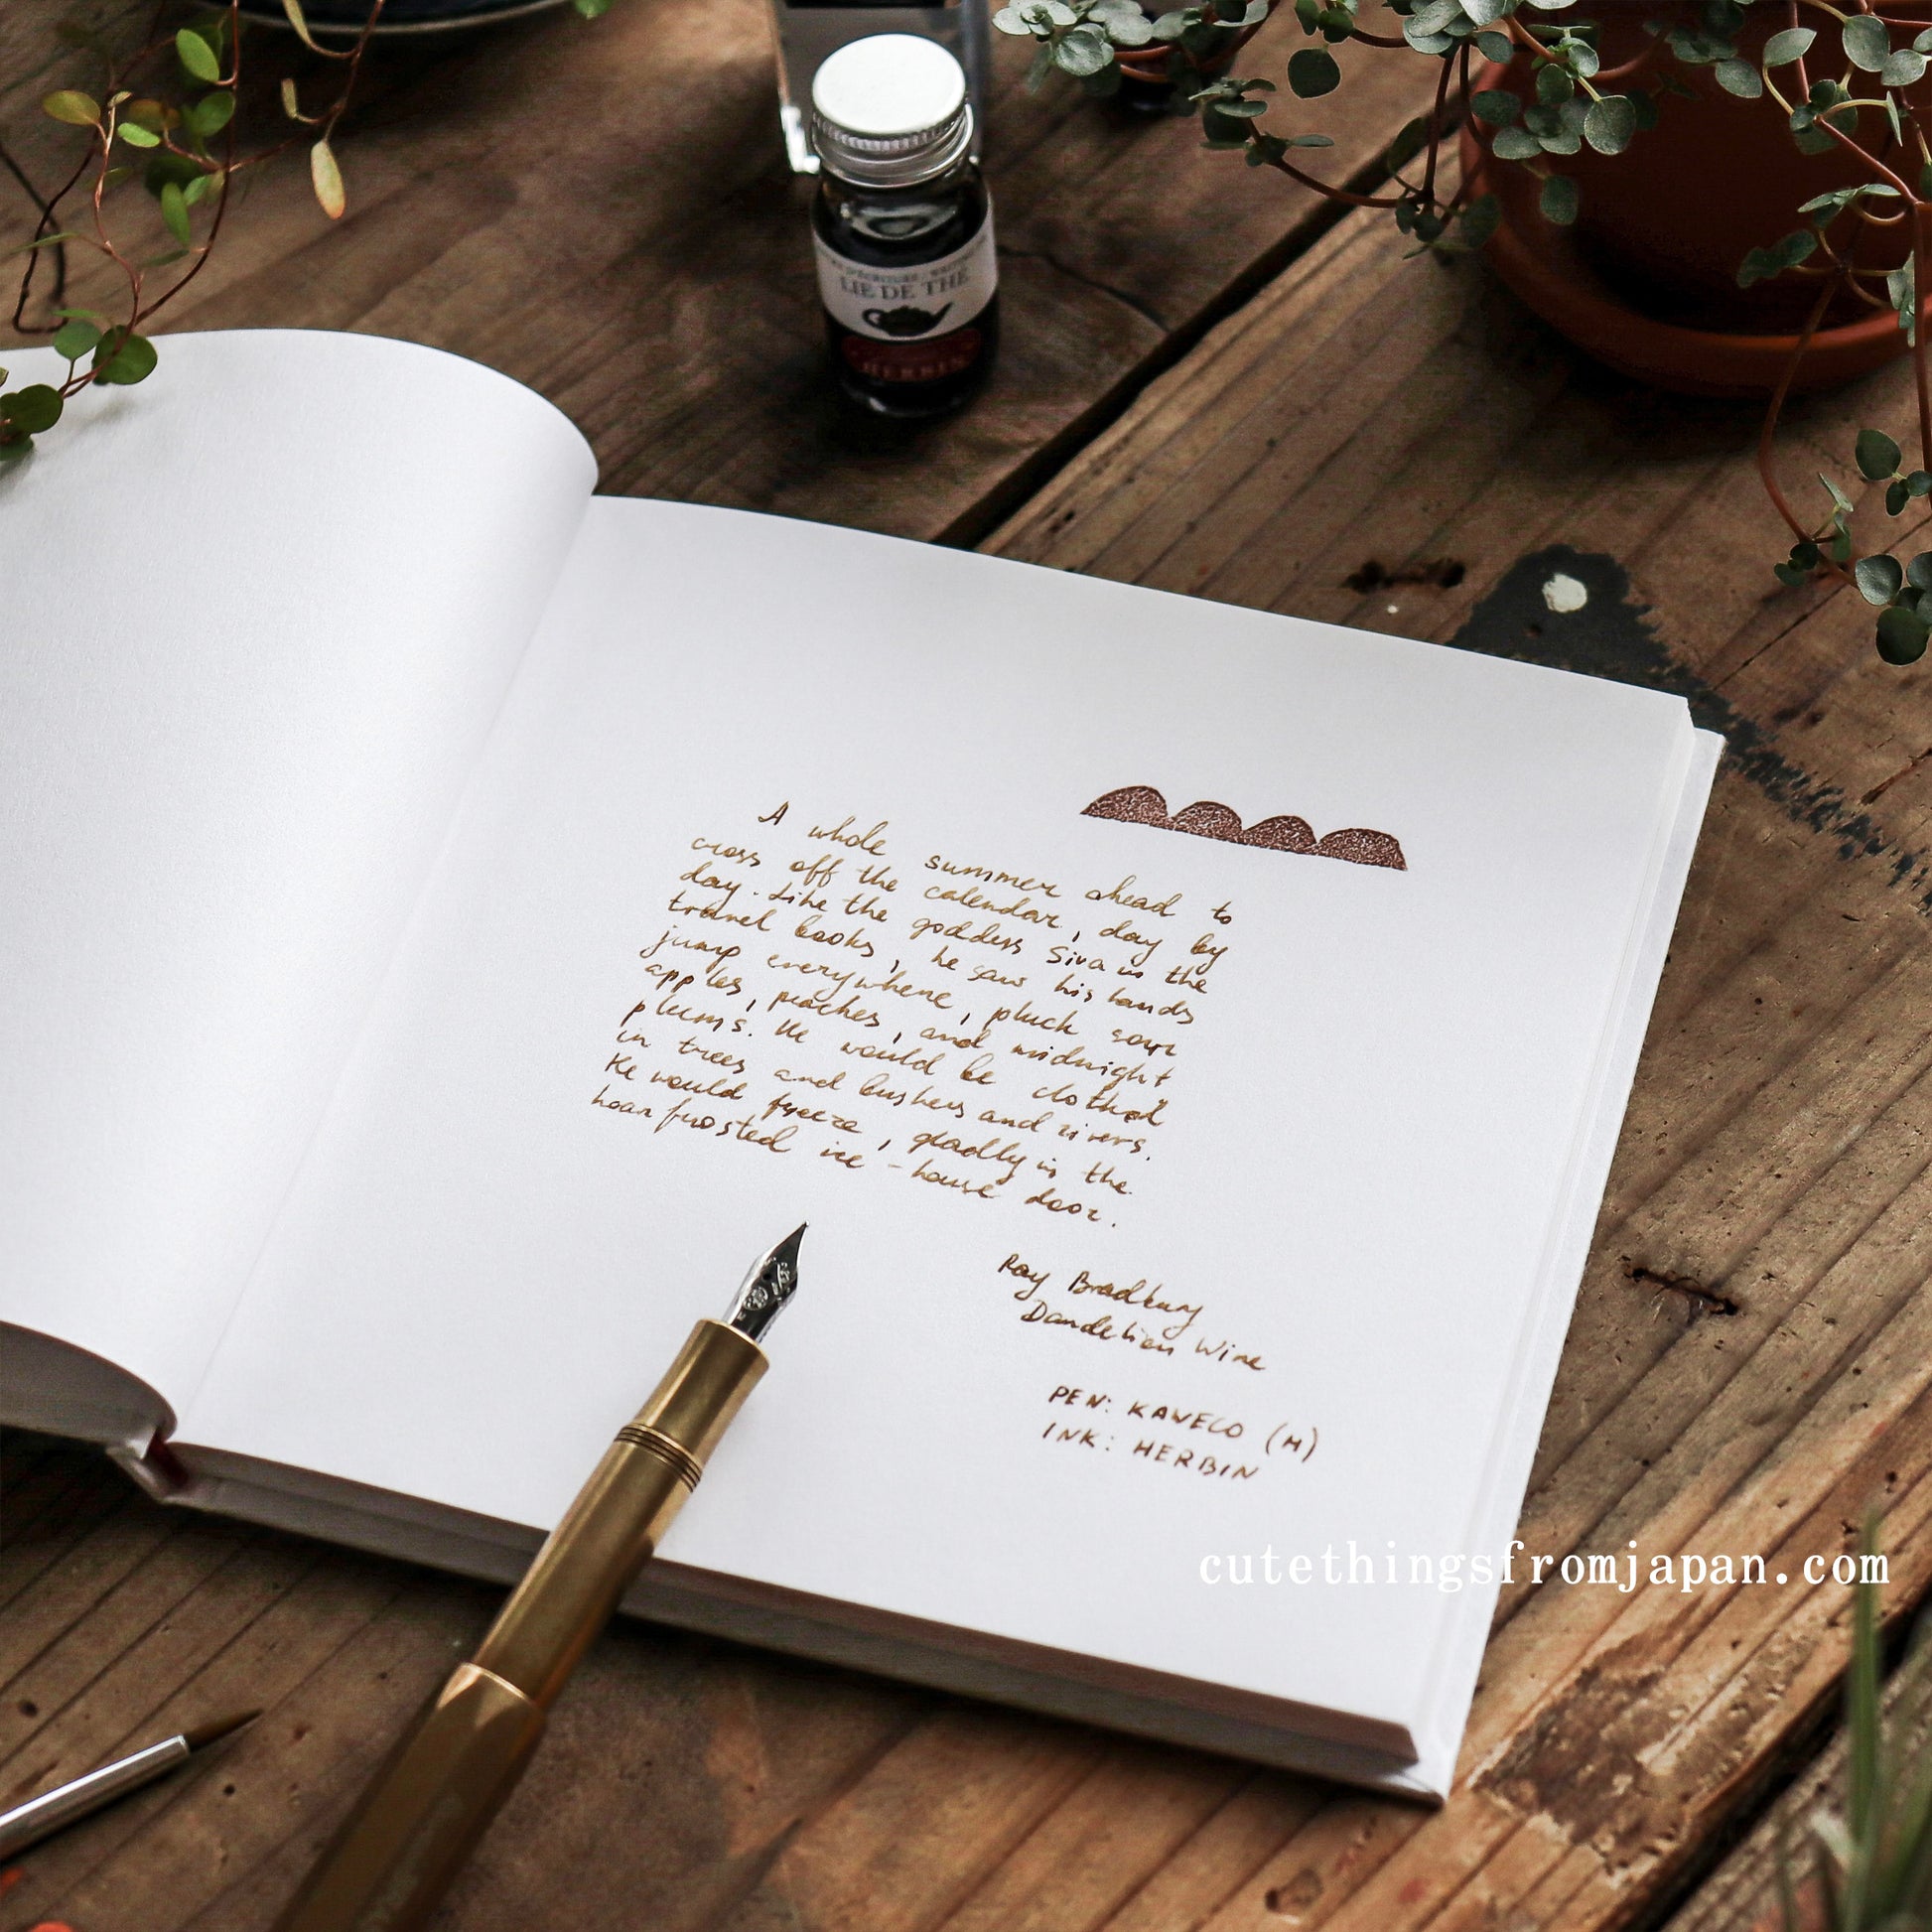 LIE DE THE
HERBIN
A whole summer ahead to
cross off the calendar, day by
day. Like the goddess Siva in the
travel books, he saw his hands
jump everywhere, pluck sour
apples, peaches, and midnight
plums. He would be clothed
in trees and bushes and rivers.
He would freeze, gladly in the
hoar frosted ice-house door.
Ray Bradbury
Dandelion Wine
PEN: KAWECO (M)
INK: HERBIN
cutethingsfromjapan.com